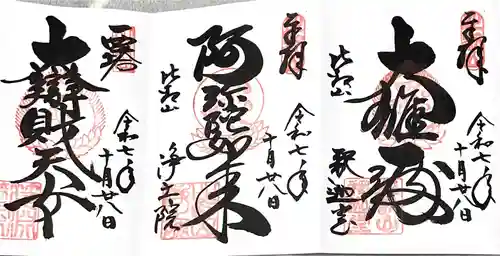 奉拝
令和七年
十月廿八日
大雄殿
比叡山
釈迦堂
奉拝
令和七年
十月廿八日
阿弥陀如来
比叡山
浄土院
令和七年
十月廿八日
大辯財天女